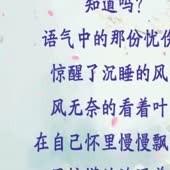 知道吗?
语气中的那份忧伤
惊醒了沉睡的风
风无奈的看着叶
在自己怀里慢慢飘